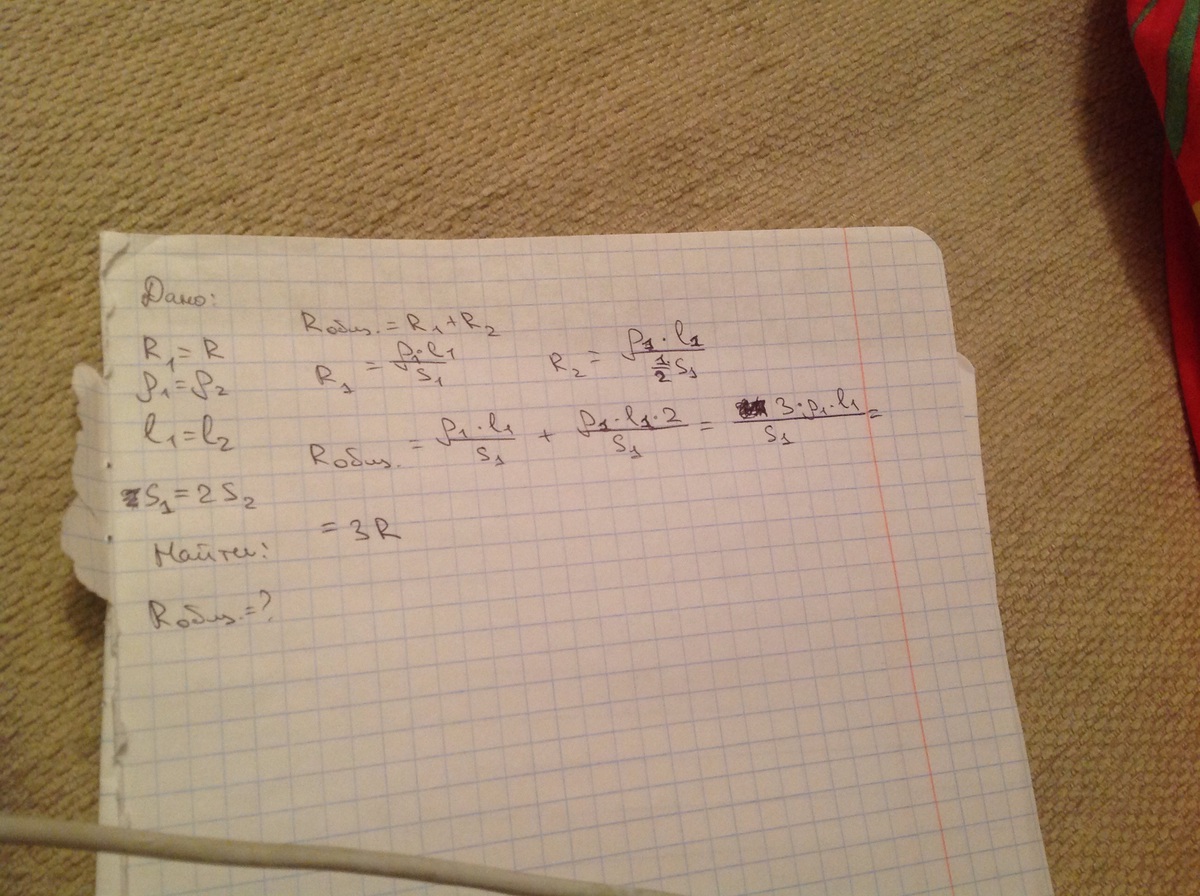 Дано:
R₁ = R
ρ₁ = ρ₂
l₁ = l₂
S₁ = 2S₂
Найти:
Rобщ. = ?
Rобщ. = R₁ + R₂
R₁ = ρ₁·l₁ / S₁
R₂ = ρ₁·l₁ / ½S₁
Rобщ. = ρ₁·l₁ / S₁ + ρ₁·l₁·2 / S₁ = 3·ρ₁·l₁ / S₁ =
= 3R